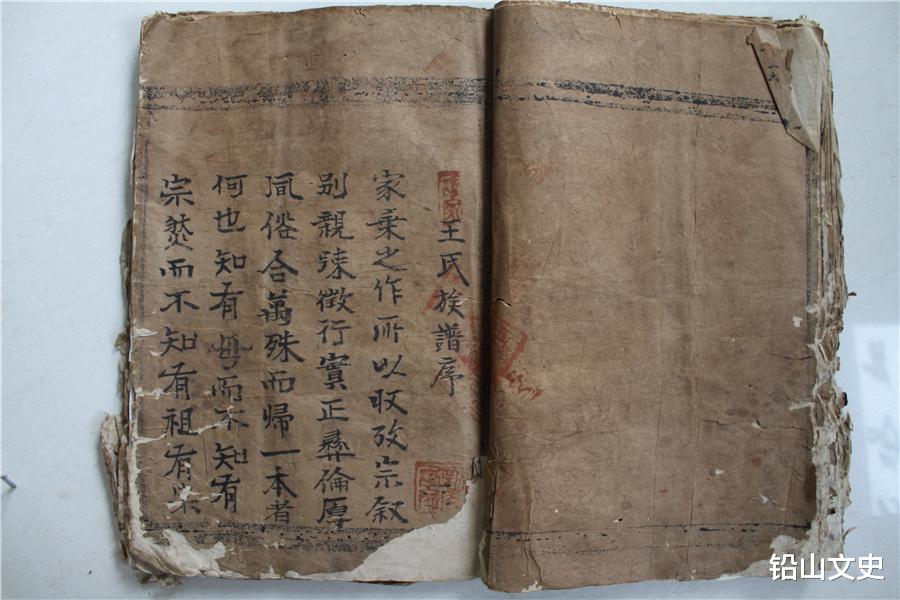 王氏族譜序
家乗之作所以收攷宗叙
别親疎徵行實正彝倫厚
風俗合萬殊而歸一本者
何也知有母而不知有
宗然而不知有祖有
铅山文史